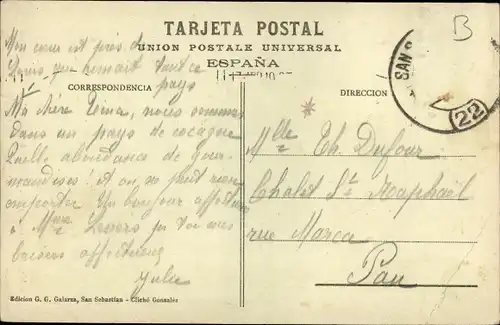 B
TARJETA POSTAL
UNION POSTALE UNIVERSAL
ESPAÑA
CORRESPONDENCIA
DIRECCION
SAN
22
Mon cœur est près de
pays
Ma chère, nous sommes
dans un pays de cocagne
Quelle abondance de gour-
mandises! et on ne peut rien
emporter. Un bonjour affectueux
à Mme pour toi mes
baisers affectueux
Julie
Mlle Th. Dufour
Chalet St Raphaël
rue Marca
Pau
Edicion G. G. Galarza, San Sebastian - Cliché Gonzalez